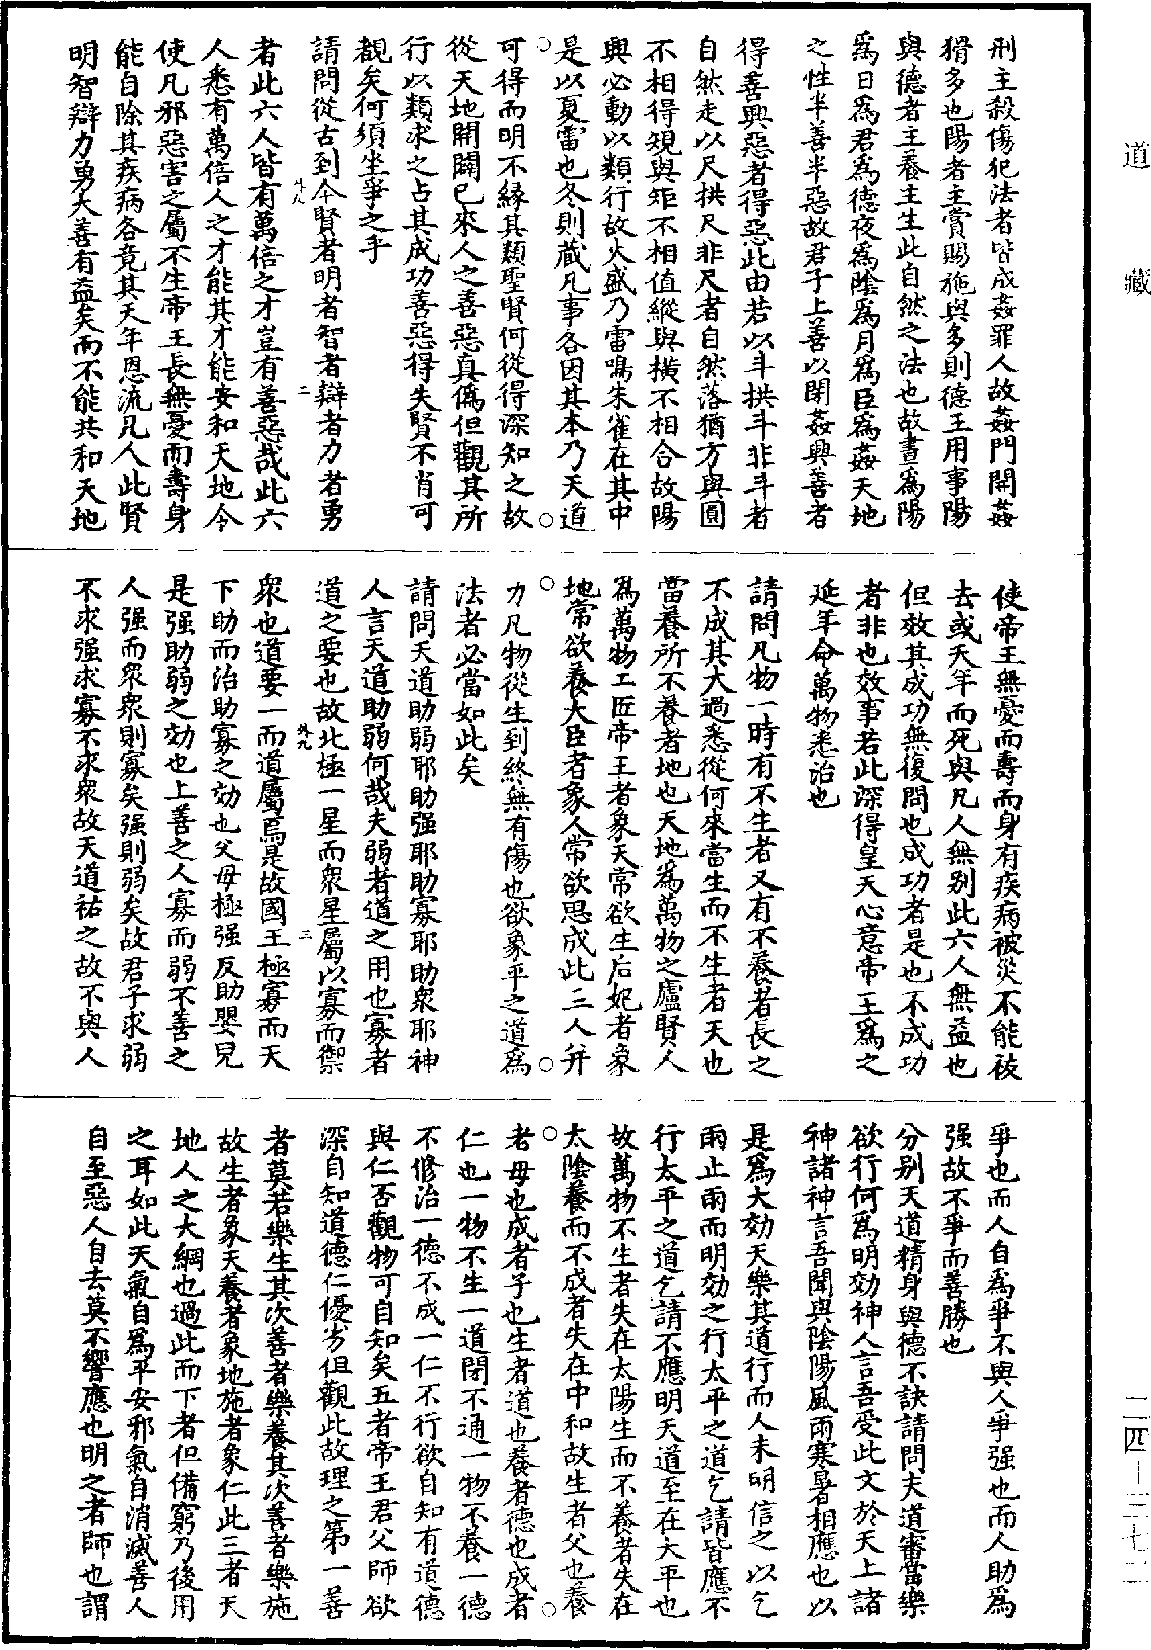 道藏
刑主殺傷犯法者皆成姦罪人故姦門開姦
猾多也陽者主賞賜施與多則德王用事陽
與德者主養主生此自然之法也故晝爲陽
爲日爲君爲德夜爲陰爲月爲臣爲姦天地
之性半善半惡故君子上善以閉姦興善者
得善興惡者得惡此由若以斗拱斗非斗者
自然走以尺拱尺非尺者自然落猶方與圓
不相得規與矩不相值縱與橫不相合故陽
興必動以類行故火盛乃雷鳴朱雀在其中
是以夏雷也冬則藏凡事各因其本乃天道
可得而明不緣其類聖賢何從得深知之故
從天地開闢已來人之善惡真僞但觀其所
行以類求之占其成功善惡得失賢不肖可
覩矣何須坐爭之乎
請問從古到今賢者明者智者辯者力者勇
外八 二
者此六人皆有萬倍之才豈有善惡哉此六
人悉有萬倍人之才能其才能安和天地令
使凡邪惡害之屬不生帝王長無憂而壽身
能自除其疾病各竟其天年恩流凡人此賢
明智辯力勇大善有益矣而不能共和天地
使帝王無憂而壽而身有疾病被災不能祓
去或夭年而死與凡人無別此六人無益也
但效其成功無復問也成功者是也不成功
者非也效事若此深得皇天心意帝王爲之
延年命萬物悉治也
請問凡物一時有不生者又有不養者長之
不成其大過悉從何來當生而不生者天也
當養所不養者地也天地爲萬物之廬賢人
爲萬物工匠帝王者象天常欲生后妃者象
地常欲養大臣者象人常欲思成此三人并
力凡物從生到終無有傷也欲象平之道爲
法者必當如此矣
請問天道助弱耶助强耶助寡耶助衆耶神
人言天道助弱何哉夫弱者道之用也寡者
道之要也故北極一星而衆星屬以寡而禦
外九 三
衆也道要一而道屬焉是故國王極寡而天
下助而治助寡之効也父母極强反助嬰兒
是强助弱之効也上善之人寡而弱不善之
人强而衆衆則寡矣强則弱矣故君子求弱
不求强求寡不求衆故天道祐之故不與人
爭也而人自爲爭不與人爭强也而人助爲
强故不爭而善勝也
分別天道精身與德不訣請問夫道審當樂
欲行何爲明効神人言吾受此文於天上諸
神諸神言吾聞與陰陽風雨寒暑相應也以
是爲大効天樂其道行而人未明信之以乞
雨止雨而明効之行太平之道乞請皆應不
行太平之道乞請不應明天道至在太平也
故萬物不生者失在太陽生而不養者失在
太陰養而不成者失在中和故生者父也養
者母也成者子也生者道也養者德也成者
仁也一物不生一道閉不通一物不養一德
不修治一德不成一仁不行欲自知有道德
與仁否觀物可自知矣五者帝王君父師欲
深自知道德仁優劣但觀此故理之第一善
者莫若樂生其次善者樂養其次善者樂施
故生者象天養者象地施者象仁此三者天
地人之大綱也過此而下者但備窮乃後用
之耳如此天氣自爲平安邪氣自消滅善人
自至惡人自去莫不響應也明之者師也謂
二四-三七二